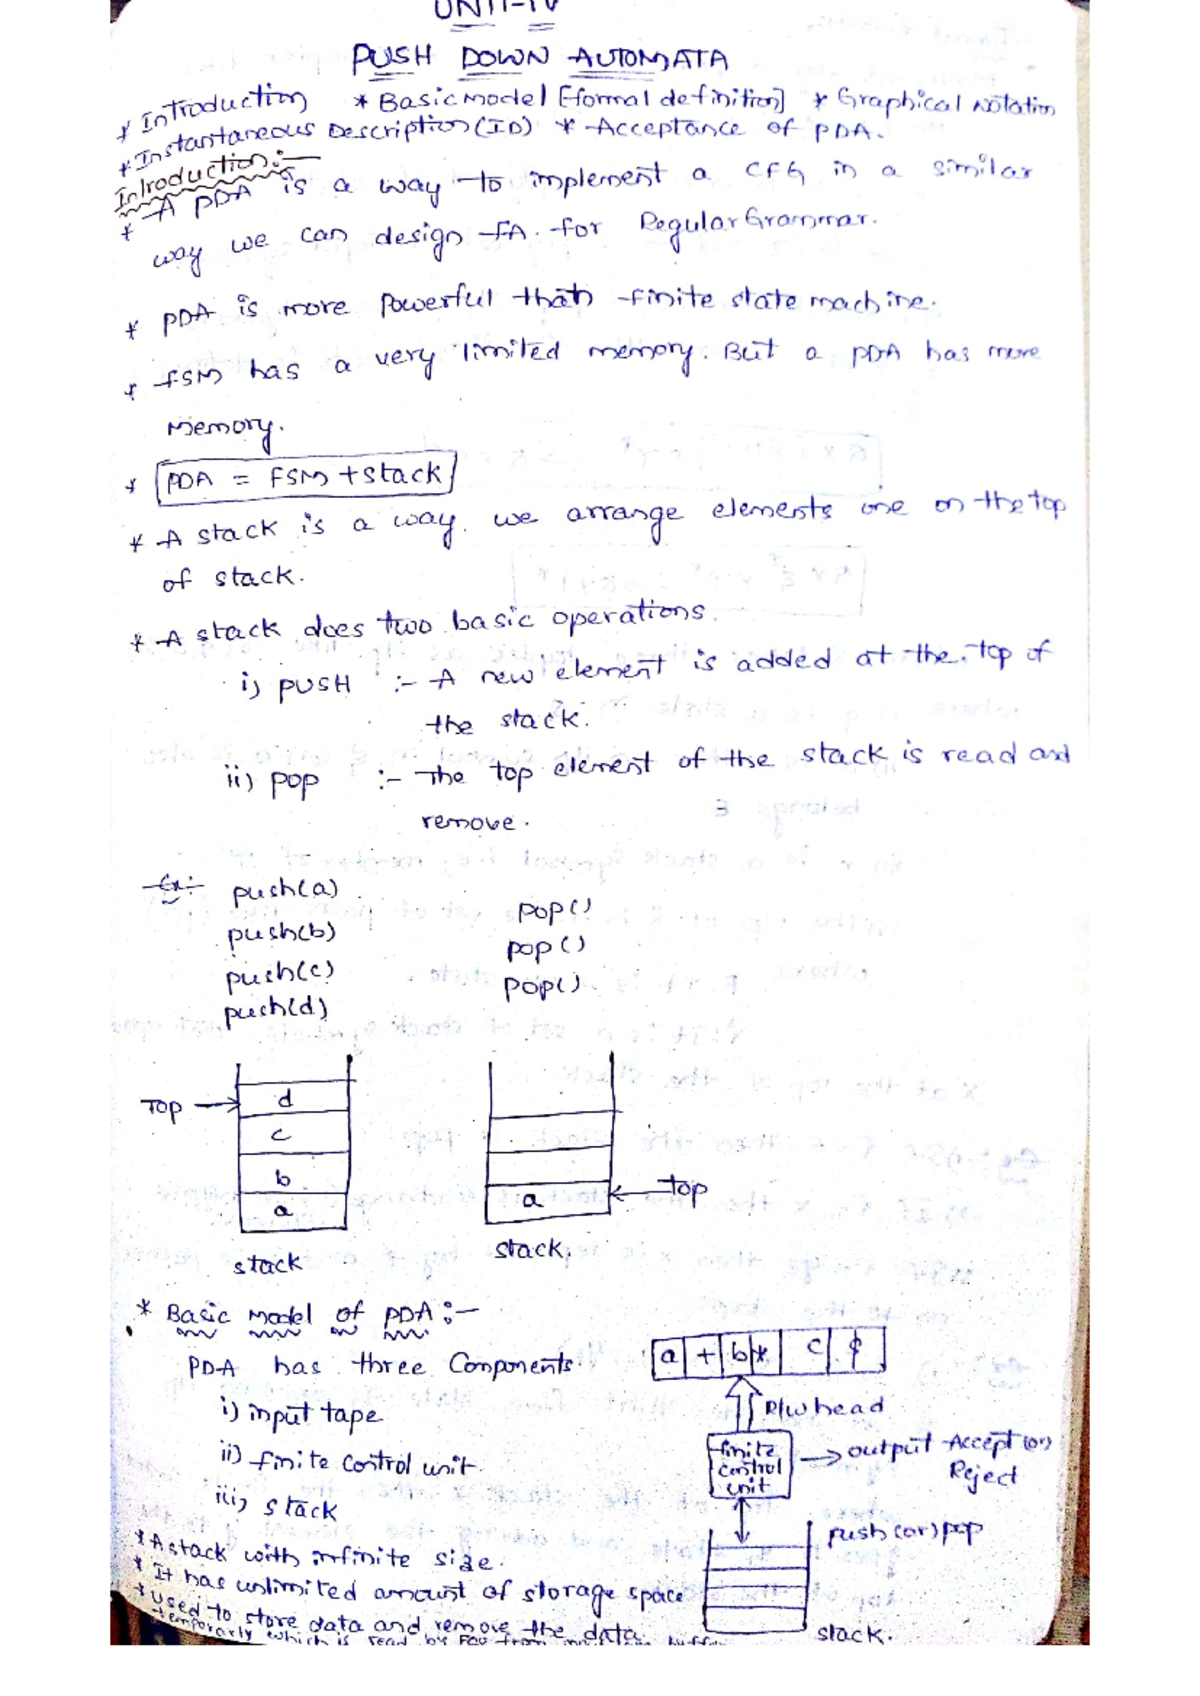 UNIT-IV
PUSH DOWN AUTOMATA
* Introduction * Basic model [formal definition] * Graphical Notation
* Instantaneous Description (ID) * Acceptance of PDA.
Introduction:-
* A PDA is a way to implement a CFG in a similar
way we can design FA for Regular Grammar.
* PDA is more powerful than finite state machine.
* FSM has a very limited memory. But a PDA has more
Memory.
* PDA = FSM + stack
* A stack is a way we arrange elements one on the top
of stack.
* A stack does two basic operations.
i) PUSH :- A new element is added at the top of
the stack.
ii) pop :- The top element of the stack is read and
remove.
Ex:-
push(a) pop()
push(b) pop()
push(c) pop()
push(d)
Top → d
c
b
a
stack
a ← top
stack
* Basic model of PDA:-
PDA has three Components.
i) input tape
ii) finite control unit.
iii) stack
a + b * c $
R/W head
finite control unit → output Accept (or)
Reject
push (or) pop
stack.
* A stack with infinite size.
* It has unlimited amount of storage space
* Used to store data and remove the data
temporarly which is read by FCU from